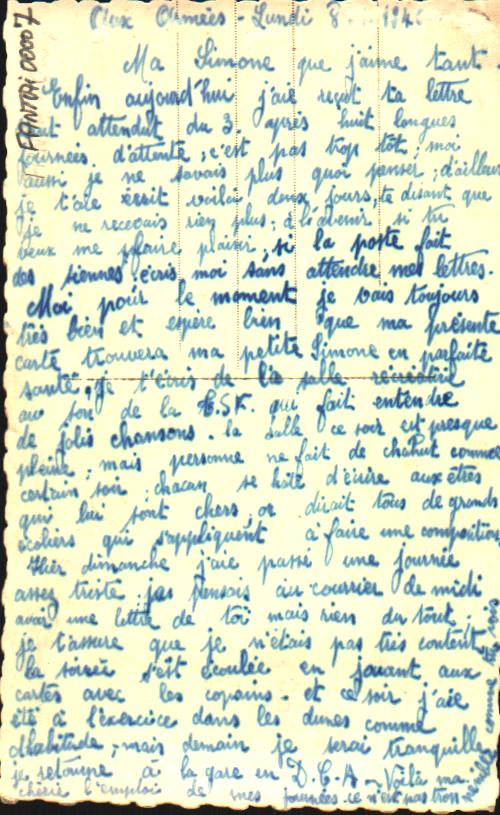 Aux Armées - Lundi 8 194
Ma Simone que j'aime tant.
Enfin aujourd'hui j'aie reçut ta lettre
tant attendut du 3. après huit longues
journées d'attente ; c'est pas trop tôt ; moi
aussi je ne savais plus quoi penser ; d'ailleurs
je t'aie écrit voilà deux jours, te disant que
je ne recevais rien plus ; à l'avenir si tu
veux me faire plaisir, si la poste fait
des siennes écris moi sans attendre mes lettres.
Moi pour le moment je vais toujours
très bien et espère bien que ma présente
carte trouvera ma petite Simone en parfaite
santé. je t'écris de la salle récréatif
au son de la T.S.F. qui fait entendre
de jolis chansons. la salle ce soir est presque
pleine ; mais personne ne fait de chahut comme
certain soir ; chacun se hâte d'écrire aux êtres
qui lui sont chers, or dirait tous de grands
écoliers qui s'appliquent à faire une composition
Hier dimanche j'aie passé une journée
assez triste je pensais au courrier de midi
avoir une lettre de toi mais rien du tout ;
je t'assure que je n'étais pas très content
la soirée s'est écoulée en jouant aux
cartes avec les copains - et ce soir j'aie
été à l'exercice dans les dunes comme
d'habitude ; mais demain je serai tranquille
je retourne à la gare en D.C.A - Voilà ma
chérie l'emploi de mes journées ce n'est pas trop
comme tu vois
PANTAI 00007